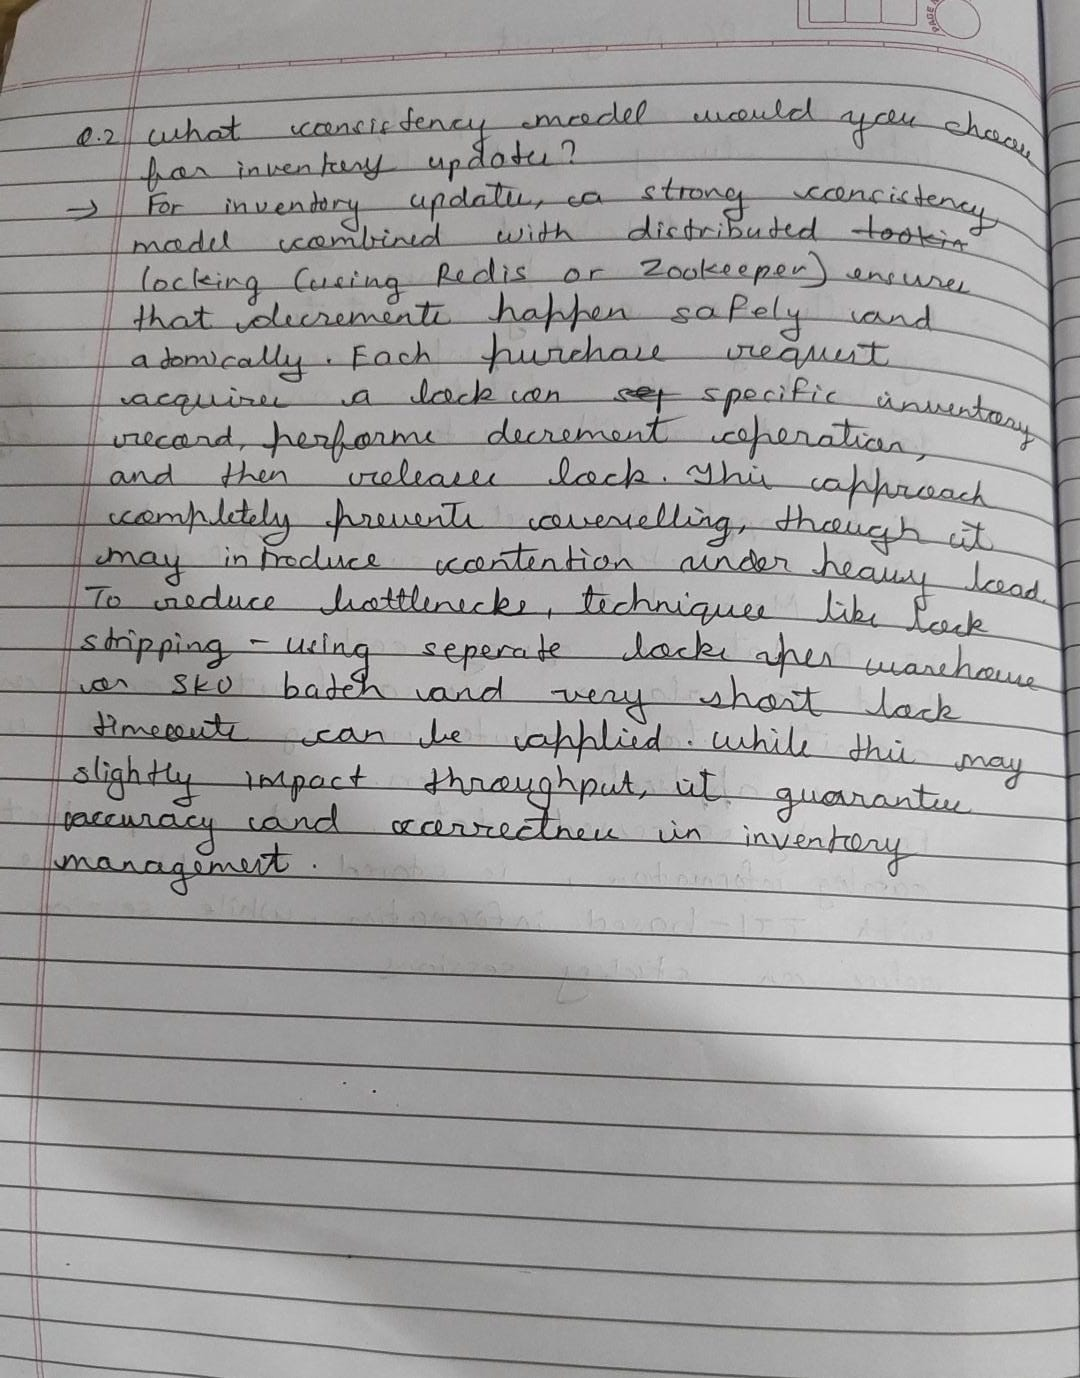 PAGE
Q.2 What consistency model would you choose
for inventory updates?
→ For inventory updates, a strong consistency
model combined with distributed
locking (using Redis or Zookeeper) ensures
that decrements happen safely and
atomically. Each purchase request
acquires a lock on specific inventory
record, performs decrement operation,
and then releases lock. This approach
completely prevents overselling, though it
may introduce contention under heavy load.
To reduce bottlenecks, techniques like lock
stripping - using seperate locks per warehouse
or SKU batch and very short lock
timeouts can be applied. While this may
slightly impact throughput, it guarantees
accuracy and correctness in inventory
management.